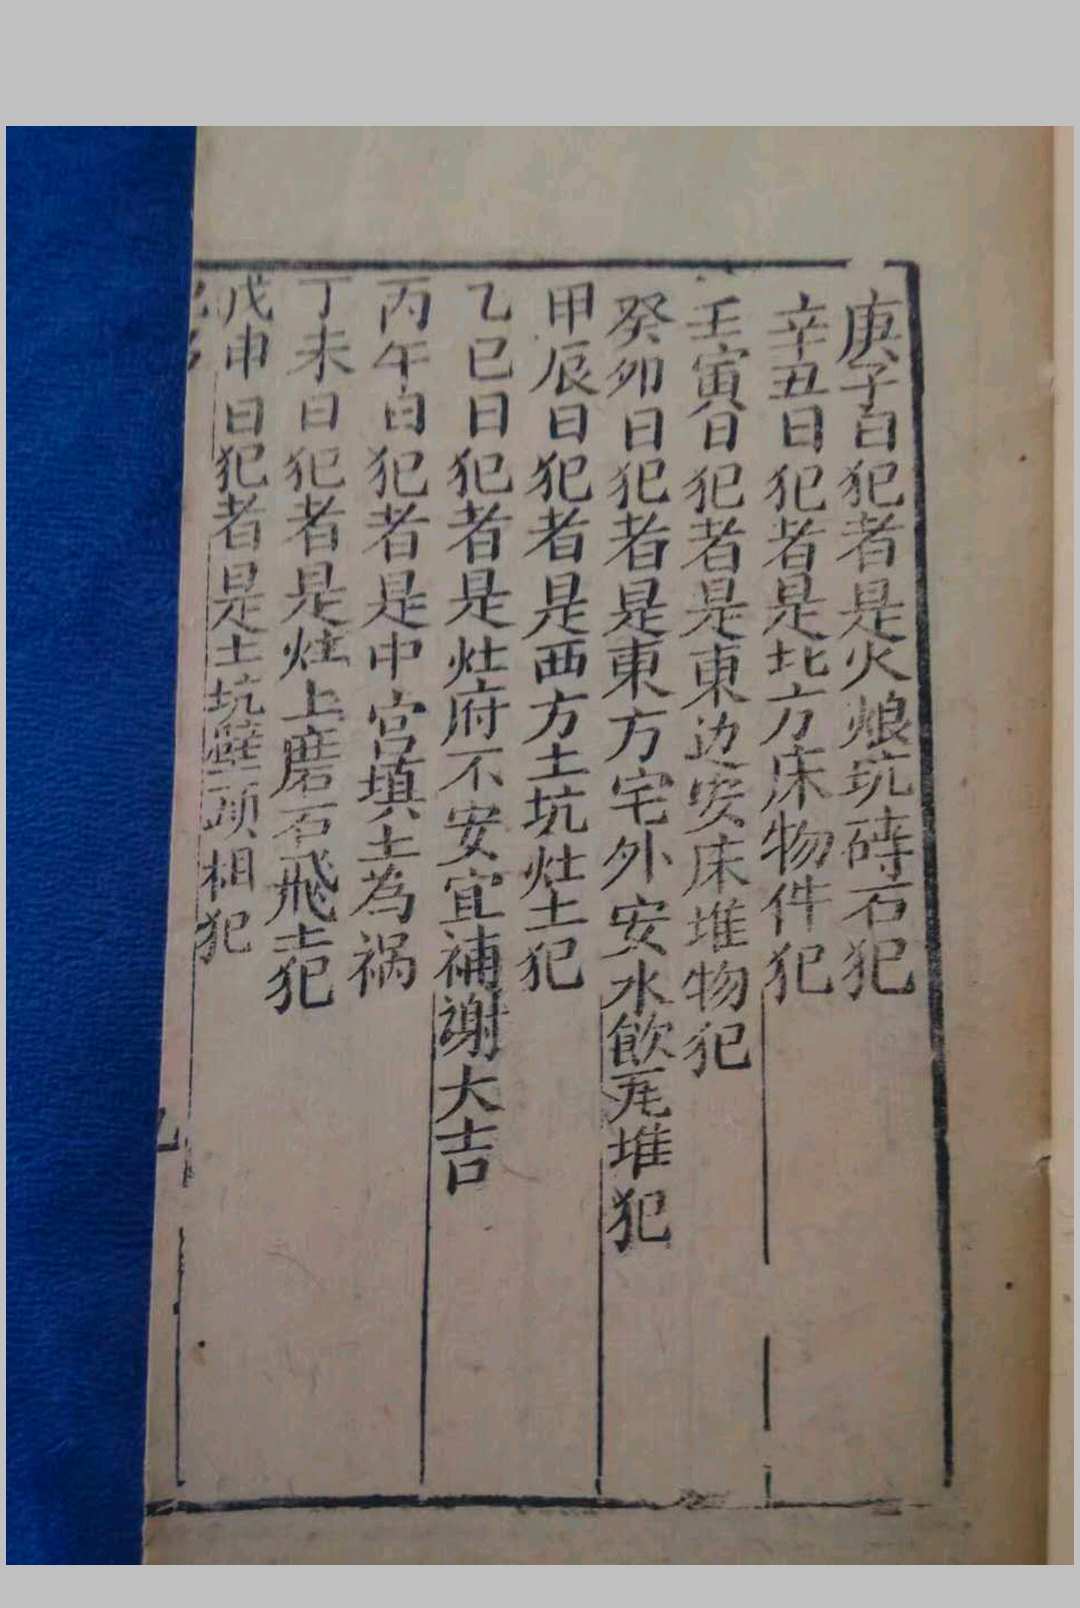 庚子日犯者是火烺坑磚石犯
辛丑日犯者是北方床物件犯
壬寅日犯者是東边安床堆物犯
癸卯日犯者是東方宅外安水飲瓦堆犯
甲辰日犯者是西方土坑灶土犯
乙巳日犯者是灶府不安宜補謝大吉
丙午日犯者是中宮填土為祸
丁未日犯者是灶上磨石飛土犯
戊申日犯者是土坑壁頭相犯